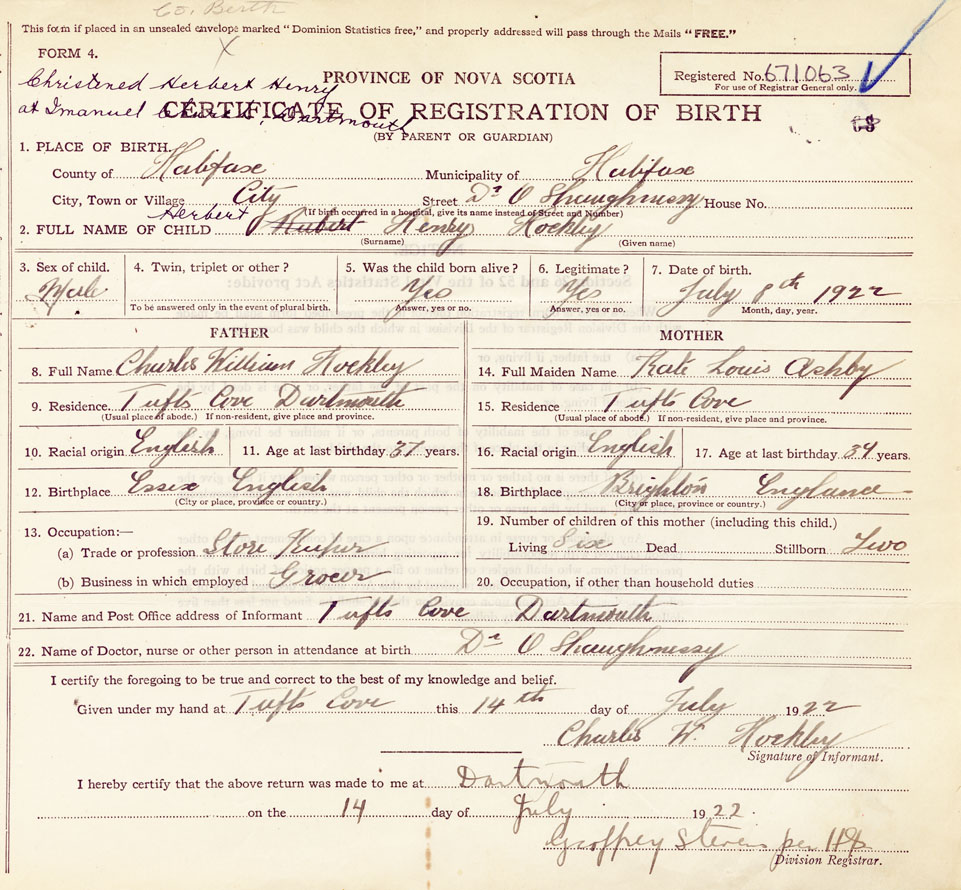 Co. Birth
This form if placed in an unsealed envelope marked "Dominion Statistics free," and properly addressed will pass through the Mails "FREE."
FORM 4.
X
Christened Herbert Henry
at Imanuel Church, Dartmouth
PROVINCE OF NOVA SCOTIA
Registered No. 671063
For use of Registrar General only.
CERTIFICATE OF REGISTRATION OF BIRTH
(BY PARENT OR GUARDIAN)
1. PLACE OF BIRTH.
County of Halifax Municipality of Halifax
City, Town or Village City Street Dr O Shaughnessy House No.
(If birth occurred in a hospital, give its name instead of Street and Number)
Herbert
2. FULL NAME OF CHILD Hubert Henry Hockley
(Surname) (Given name)
3. Sex of child. 4. Twin, triplet or other? 5. Was the child born alive? 6. Legitimate? 7. Date of birth.
Male Yes Yes July 8th 1922
To be answered only in the event of plural birth. Answer, yes or no. Answer, yes or no. Month, day, year.
FATHER
8. Full Name Charles William Hockley
9. Residence. Tufts Cove Dartmouth
(Usual place of abode.) If non-resident, give place and province.
10. Racial origin English 11. Age at last birthday 37 years.
12. Birthplace Essex English
(City or place, province or country.)
13. Occupation:—
(a) Trade or profession Store Keeper
(b) Business in which employed Grocer
MOTHER
14. Full Maiden Name Kate Louis Ashby
15. Residence Tufts Cove
(Usual place of abode.) If non-resident, give place and province.
16. Racial origin English 17. Age at last birthday 34 years.
18. Birthplace Brighton England
(City or place, province or country.)
19. Number of children of this mother (including this child.)
Living Six Dead Stillborn Two
20. Occupation, if other than household duties
21. Name and Post Office address of Informant Tufts Cove Dartmouth
22. Name of Doctor, nurse or other person in attendance at birth Dr O Shaughnessy
I certify the foregoing to be true and correct to the best of my knowledge and belief.
Given under my hand at Tufts Cove this 14th day of July 1922
Charles W. Hockley
Signature of Informant.
I hereby certify that the above return was made to me at Dartmouth
on the 14 day of July 1922
Geoffrey Stevens per
Division Registrar.